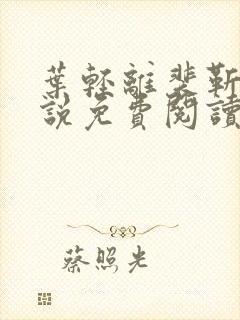 葉輕離裴靳
說免費閱讀
蔡照光